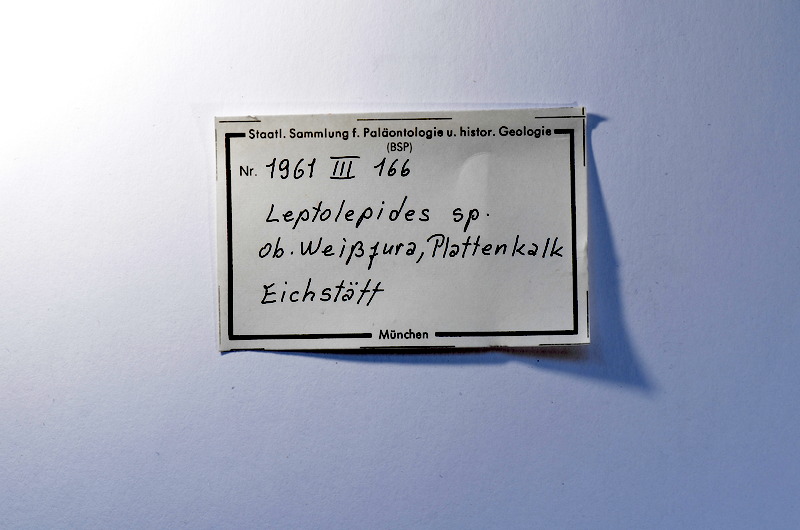 Staatl. Sammlung f. Paläontologie u. histor. Geologie
(BSP)
Nr. 1961 III 166
Leptolepides sp.
ob. Weißjura, Plattenkalk
Eichstätt
München